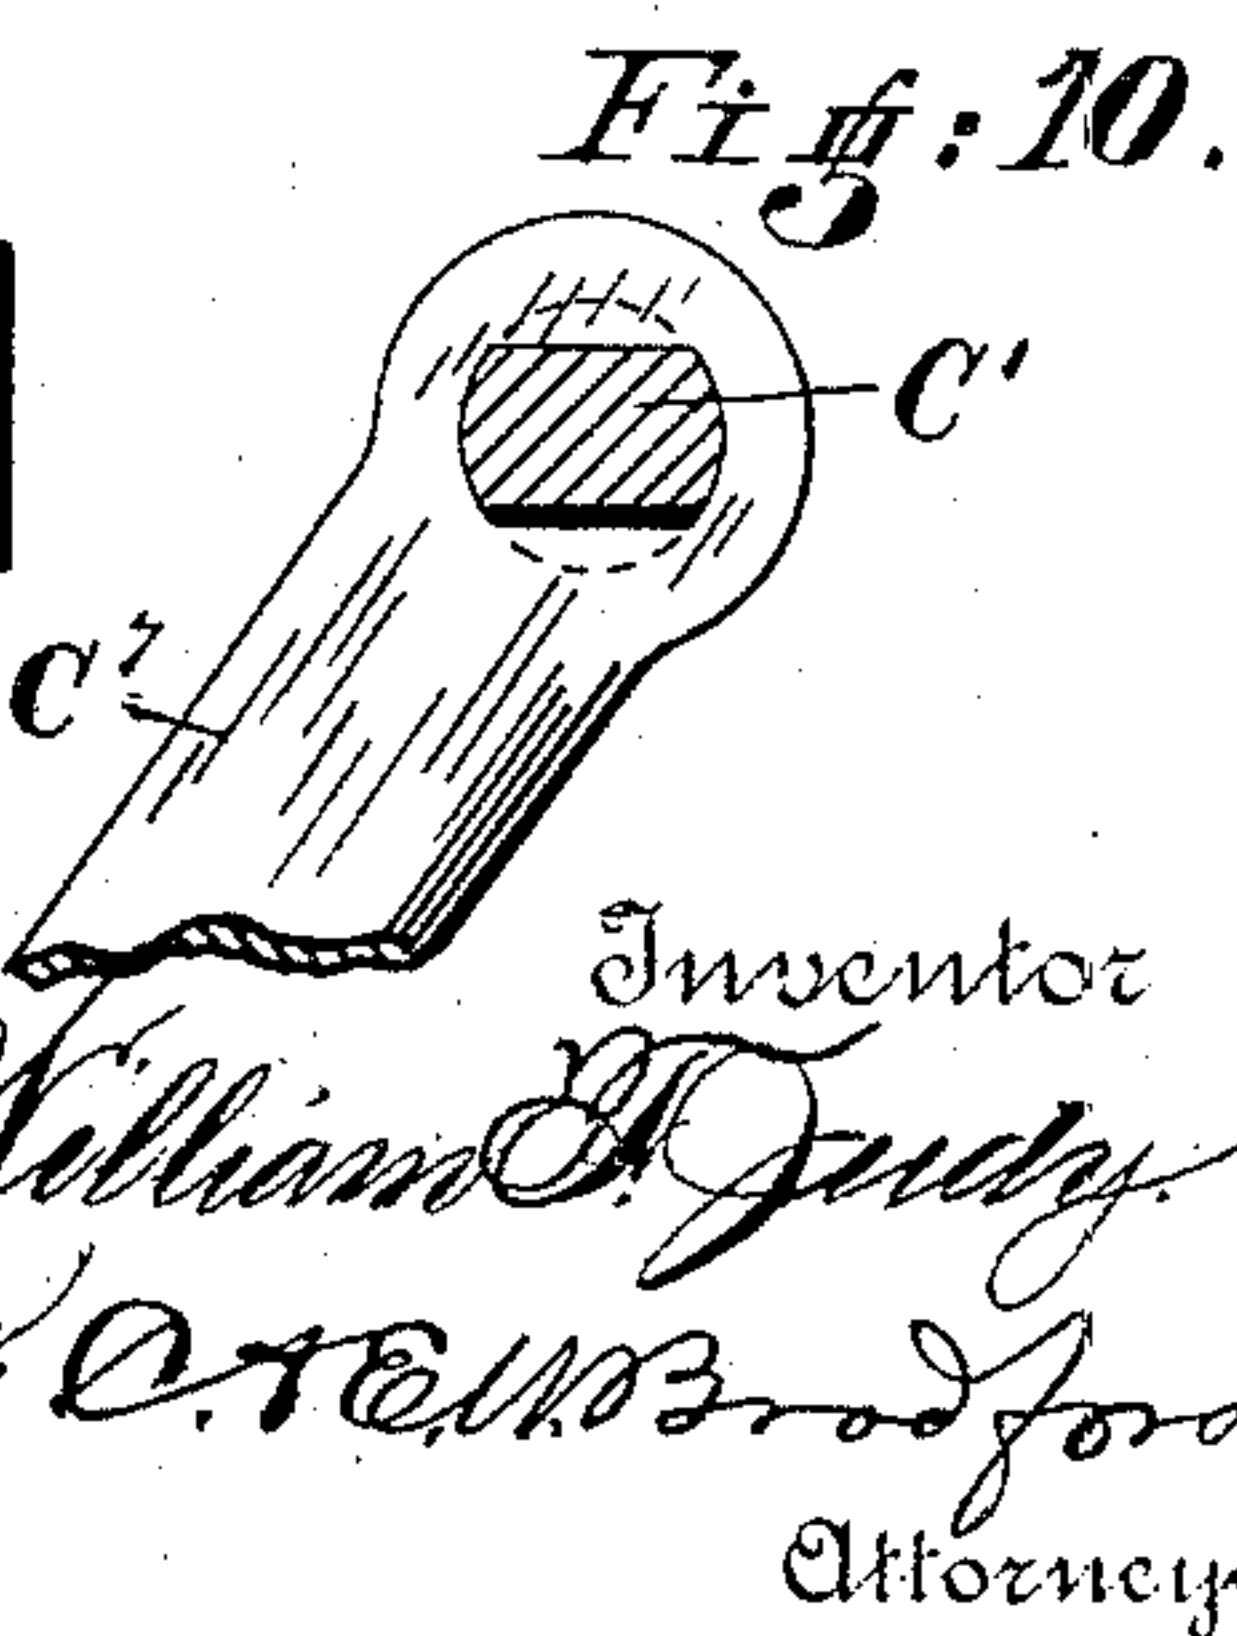 Fig: 10.
C'
C²
Inventor
William F. Judy.
C. & E. W. Bradford
Attorneys